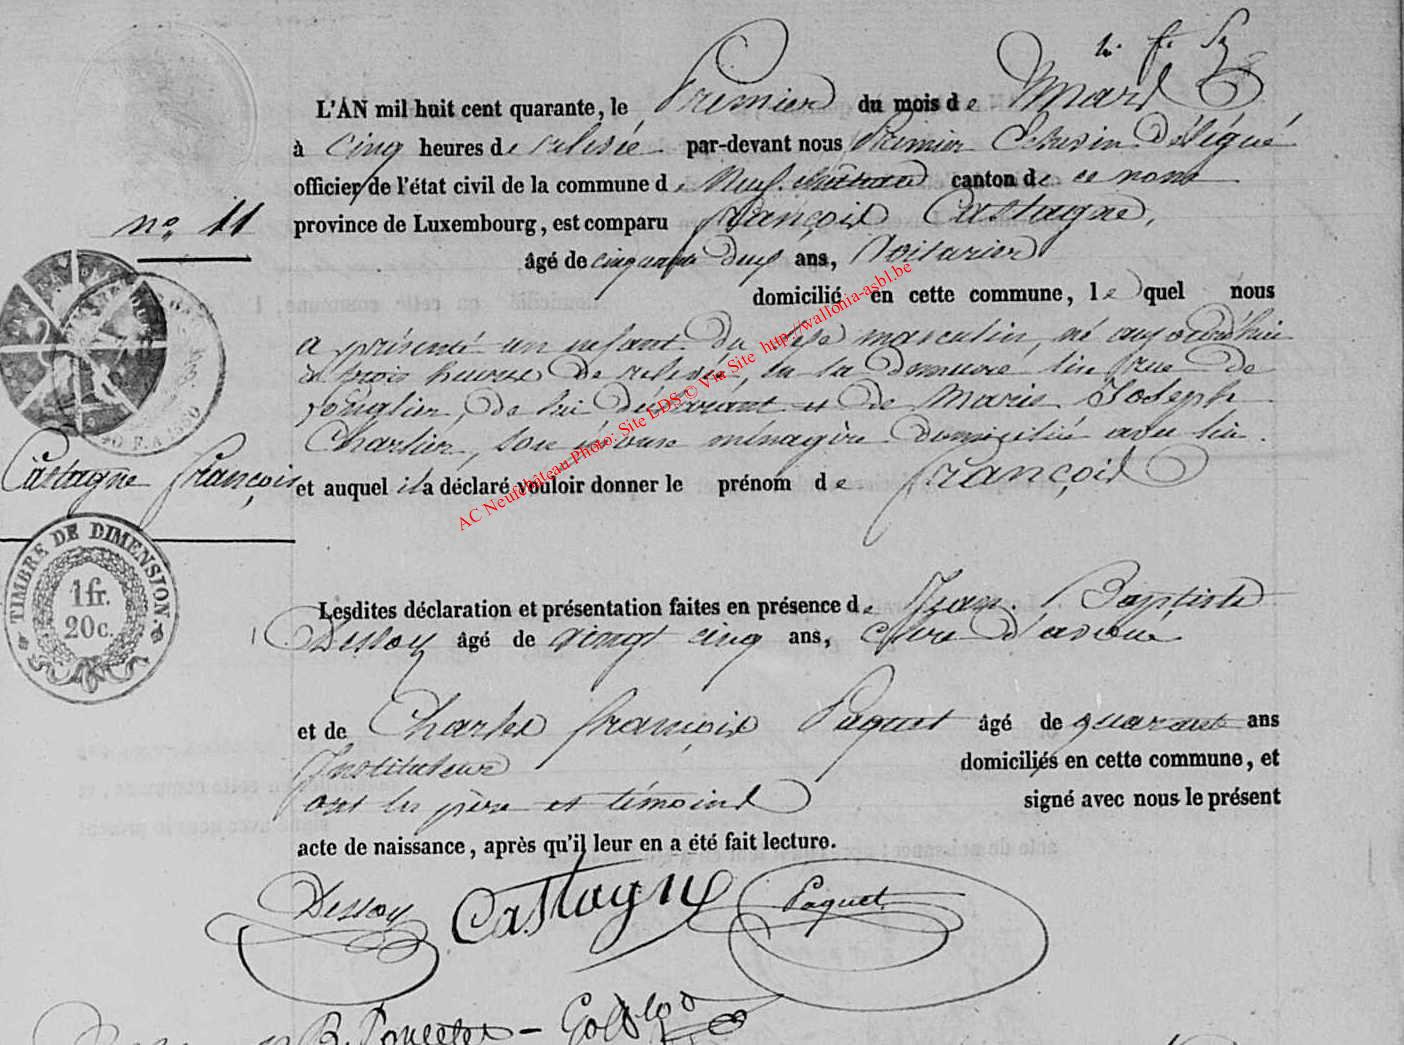 L'AN mil huit cent quarante, le Premier du mois de Mars
à cinq heures de relevée par-devant nous Premier Echevin Délégué
officier de l'état civil de la commune de Neufchâteau canton de ce nom
no 11
province de Luxembourg, est comparu François Castagne,
âgé de cinquante deux ans, Voiturier
domicilié en cette commune, lequel nous
a présenté un enfant du sexe masculin, né aujourd'hui
à trois heures de relevée, en sa demeure sise rue de
, de lui déclarant et de Marie Joseph
Charlier, son épouse ménagère domiciliée avec lui.
Castagne françois
et auquel il a déclaré vouloir donner le prénom de françois
TIMBRE DE DIMENSION.
1 fr.
20 c.
Lesdites déclaration et présentation faites en présence de Jean Baptiste
Dessoy âgé de vingt cinq ans, clerc d'avoué
et de Charles françois Paquet âgé de quarante ans
Instituteur domiciliés en cette commune, et
ont les père et témoins signé avec nous le présent
acte de naissance, après qu'il leur en a été fait lecture.
Dessoy Castagne Paquet
AC Neufchâteau Photo: Site LDS © Via Site http://wallonia-asbl.be